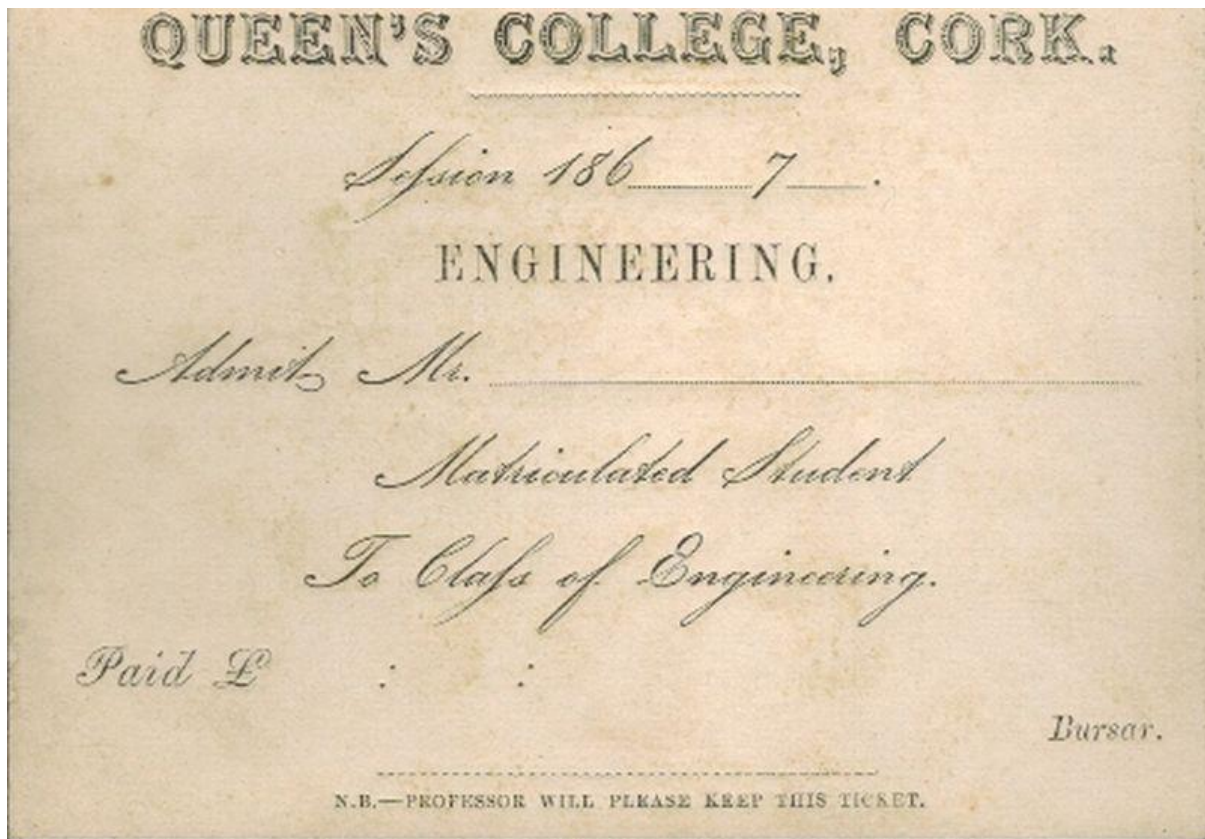 QUEEN'S COLLEGE, CORK.
Session 186 7 .
ENGINEERING.
Admit Mr.
Matriculated Student
To Class of Engineering.
Paid £ : :
Bursar.
N.B.—PROFESSOR WILL PLEASE KEEP THIS TICKET.